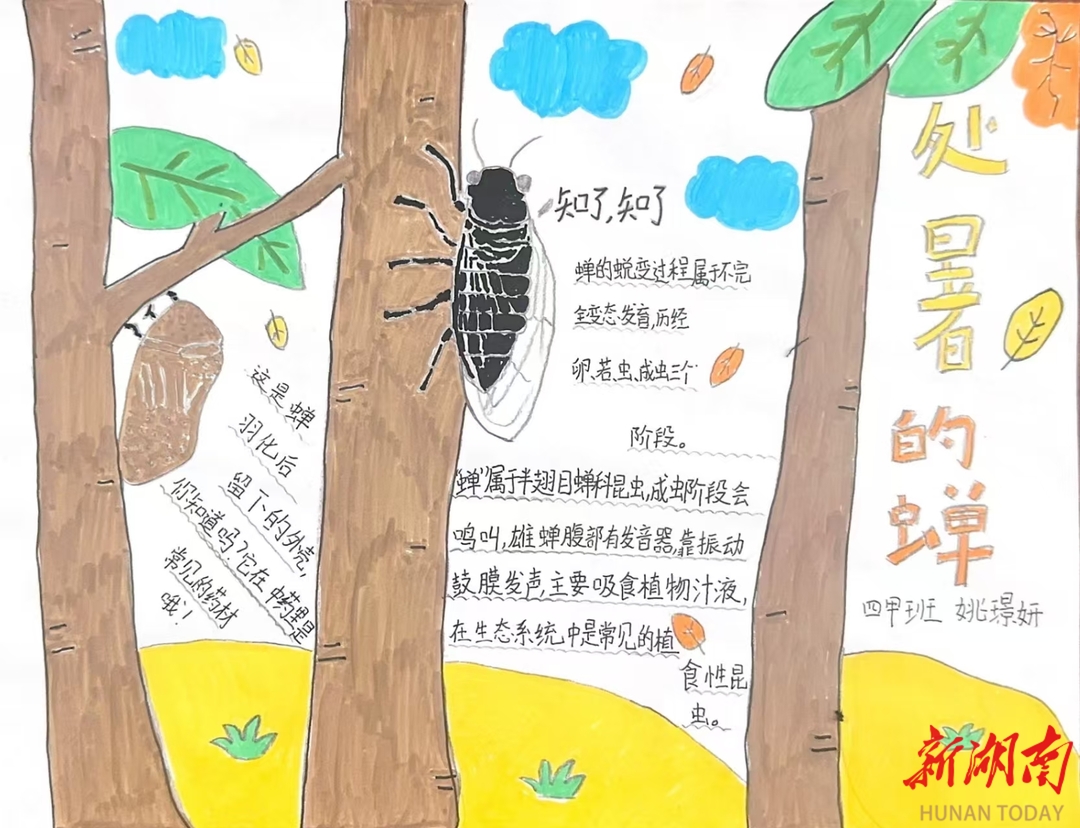 处暑的蝉
四甲班 姚璟妍
知了,知了
蝉的蜕变过程属于不完
全变态发育,历经
卵、若、虫、成虫三个
阶段。
"蝉"属于半翅目蝉科昆虫,成虫阶段会
鸣叫,雄蝉腹部有发音器,靠振动
鼓膜发声,主要吸食植物汁液,
在生态系统中是常见的植
食性昆
虫。
这是蝉
羽化后
留下的外壳,
们知道吗?它在中药里是
常见的药材
哦!
新湖南
HUNAN TODAY